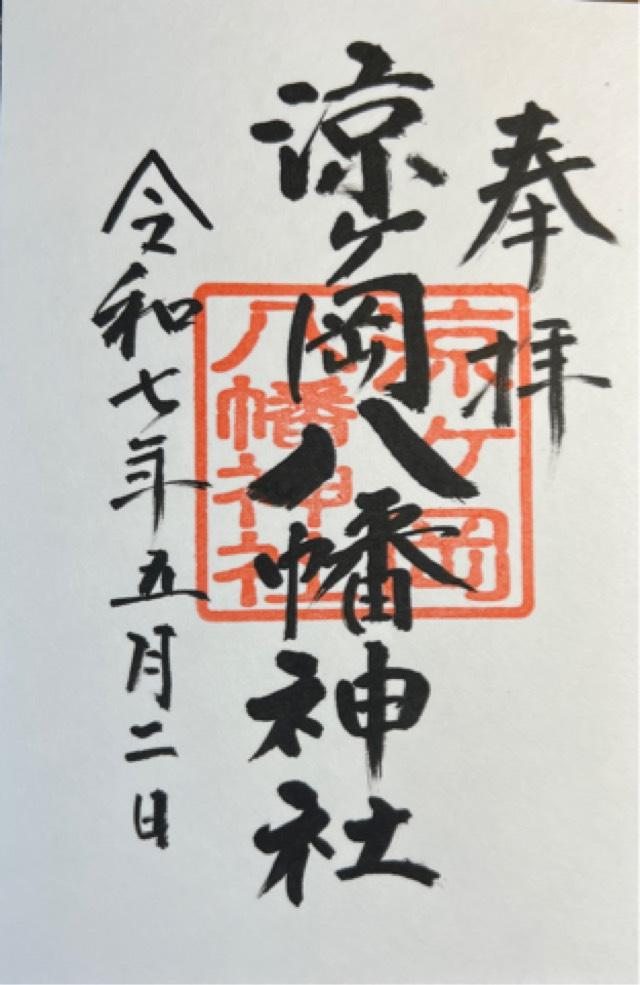 奉拝
涼ケ岡八幡神社
令和七年五月二日
涼ケ岡
八幡神社